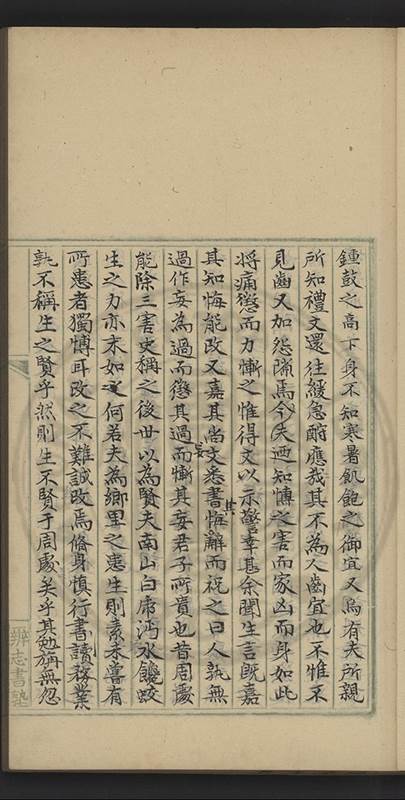 鍾鼓之高下身不知寒暑飢飽之御宜又烏有夫所親
所知禮文還往緩急酧應我其不為人齒宜也不惟不
見齒又加怨隙焉今夫迺知慱之害而家凶而身如此
將痛懲而力慚之惟得文以示警幸甚余聞生言既嘉
其知悔能改又嘉其尚文悉書其悔辭而祝之曰人孰無
過作妄為過而懲其過而慚其妄君子所貴也昔周處
能除三害史稱之後世以為賢夫南山白虎沔水饞蛟
生之力亦未如之何若夫為鄉里之患生則素未嘗有
所患者獨慱耳改之不難誠改焉脩身慎行書讀務業
孰不稱生之賢乎然則生不賢于周處矣乎其勉旃無忽
辨志書塾